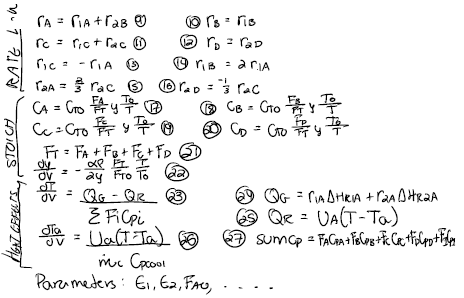 RATE L-a
rA = r1A + r2B ⑨ ⑩ rB = r1B
rC = r1C + r2C ⑪ ⑫ rD = r2D
r1C = - r1A ⑬ ⑭ r1B = 2 r1A
r2A = 2/3 r2C ⑮ ⑯ r2D = -1/3 r2C
STOICH
CA = CTO FA/FT y To/T ⑰ ⑱ CB = CTO FB/FT y To/T
CC = CTO FC/FT y To/T ⑲ ⑳ CD = CTO FD/FT y To/T
FT = FA + FB + FC + FD ㉑
dy/dV = - αρ/2y FT/FTO T/To ㉒
HEAT EFFECTS
dT/dV = QG - QR / ΣFiCpi ㉓ ㉔ QG = r1A ΔHR1A + r2A ΔHR2A
㉕ QR = UA(T-Ta)
dTa/dV = Ua(T-Ta) / ṁc Cpcool ㉖ ㉗ sumCp = FACPA+FBCPB+FCCPC+FDCPD
Parameters: E1, E2, FAO, . . . . .